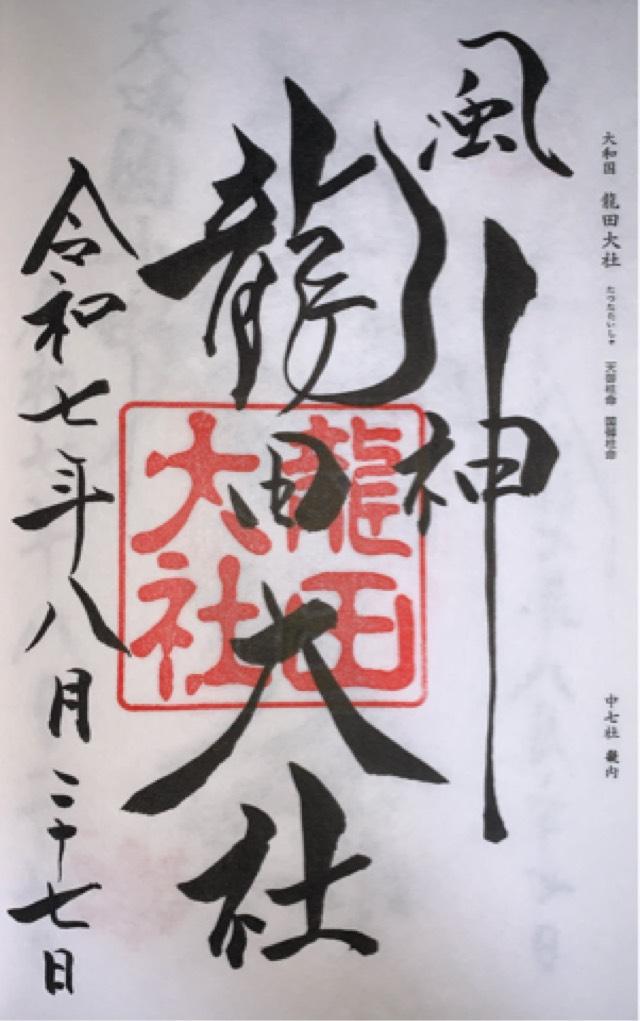 大和国 龍田大社 たつたたいしゃ 天御柱命 国御柱命
中七社 畿内
風神
龍田大社
龍田大社
令和七年八月二十七日